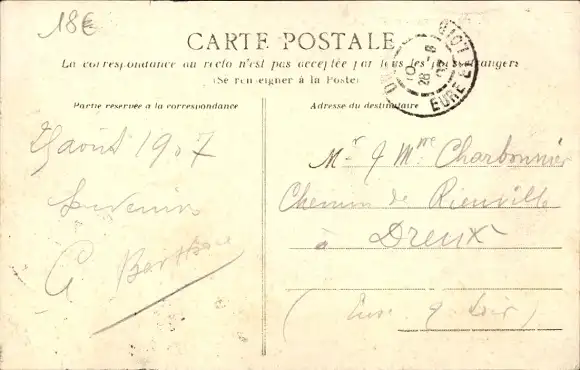 18€
CARTE POSTALE
La correspondance au recto n'est pas acceptée par tous les pays étrangers
(Se renseigner à la Poste)
10 28-8 07
EURE ET LOIR
Partie réservée à la correspondance
Adresse du destinataire
août 1907
Souvenir
Mr & Mme Charbonnier
Chemin de Rieuville
à Dreux
(Eure & Loir)